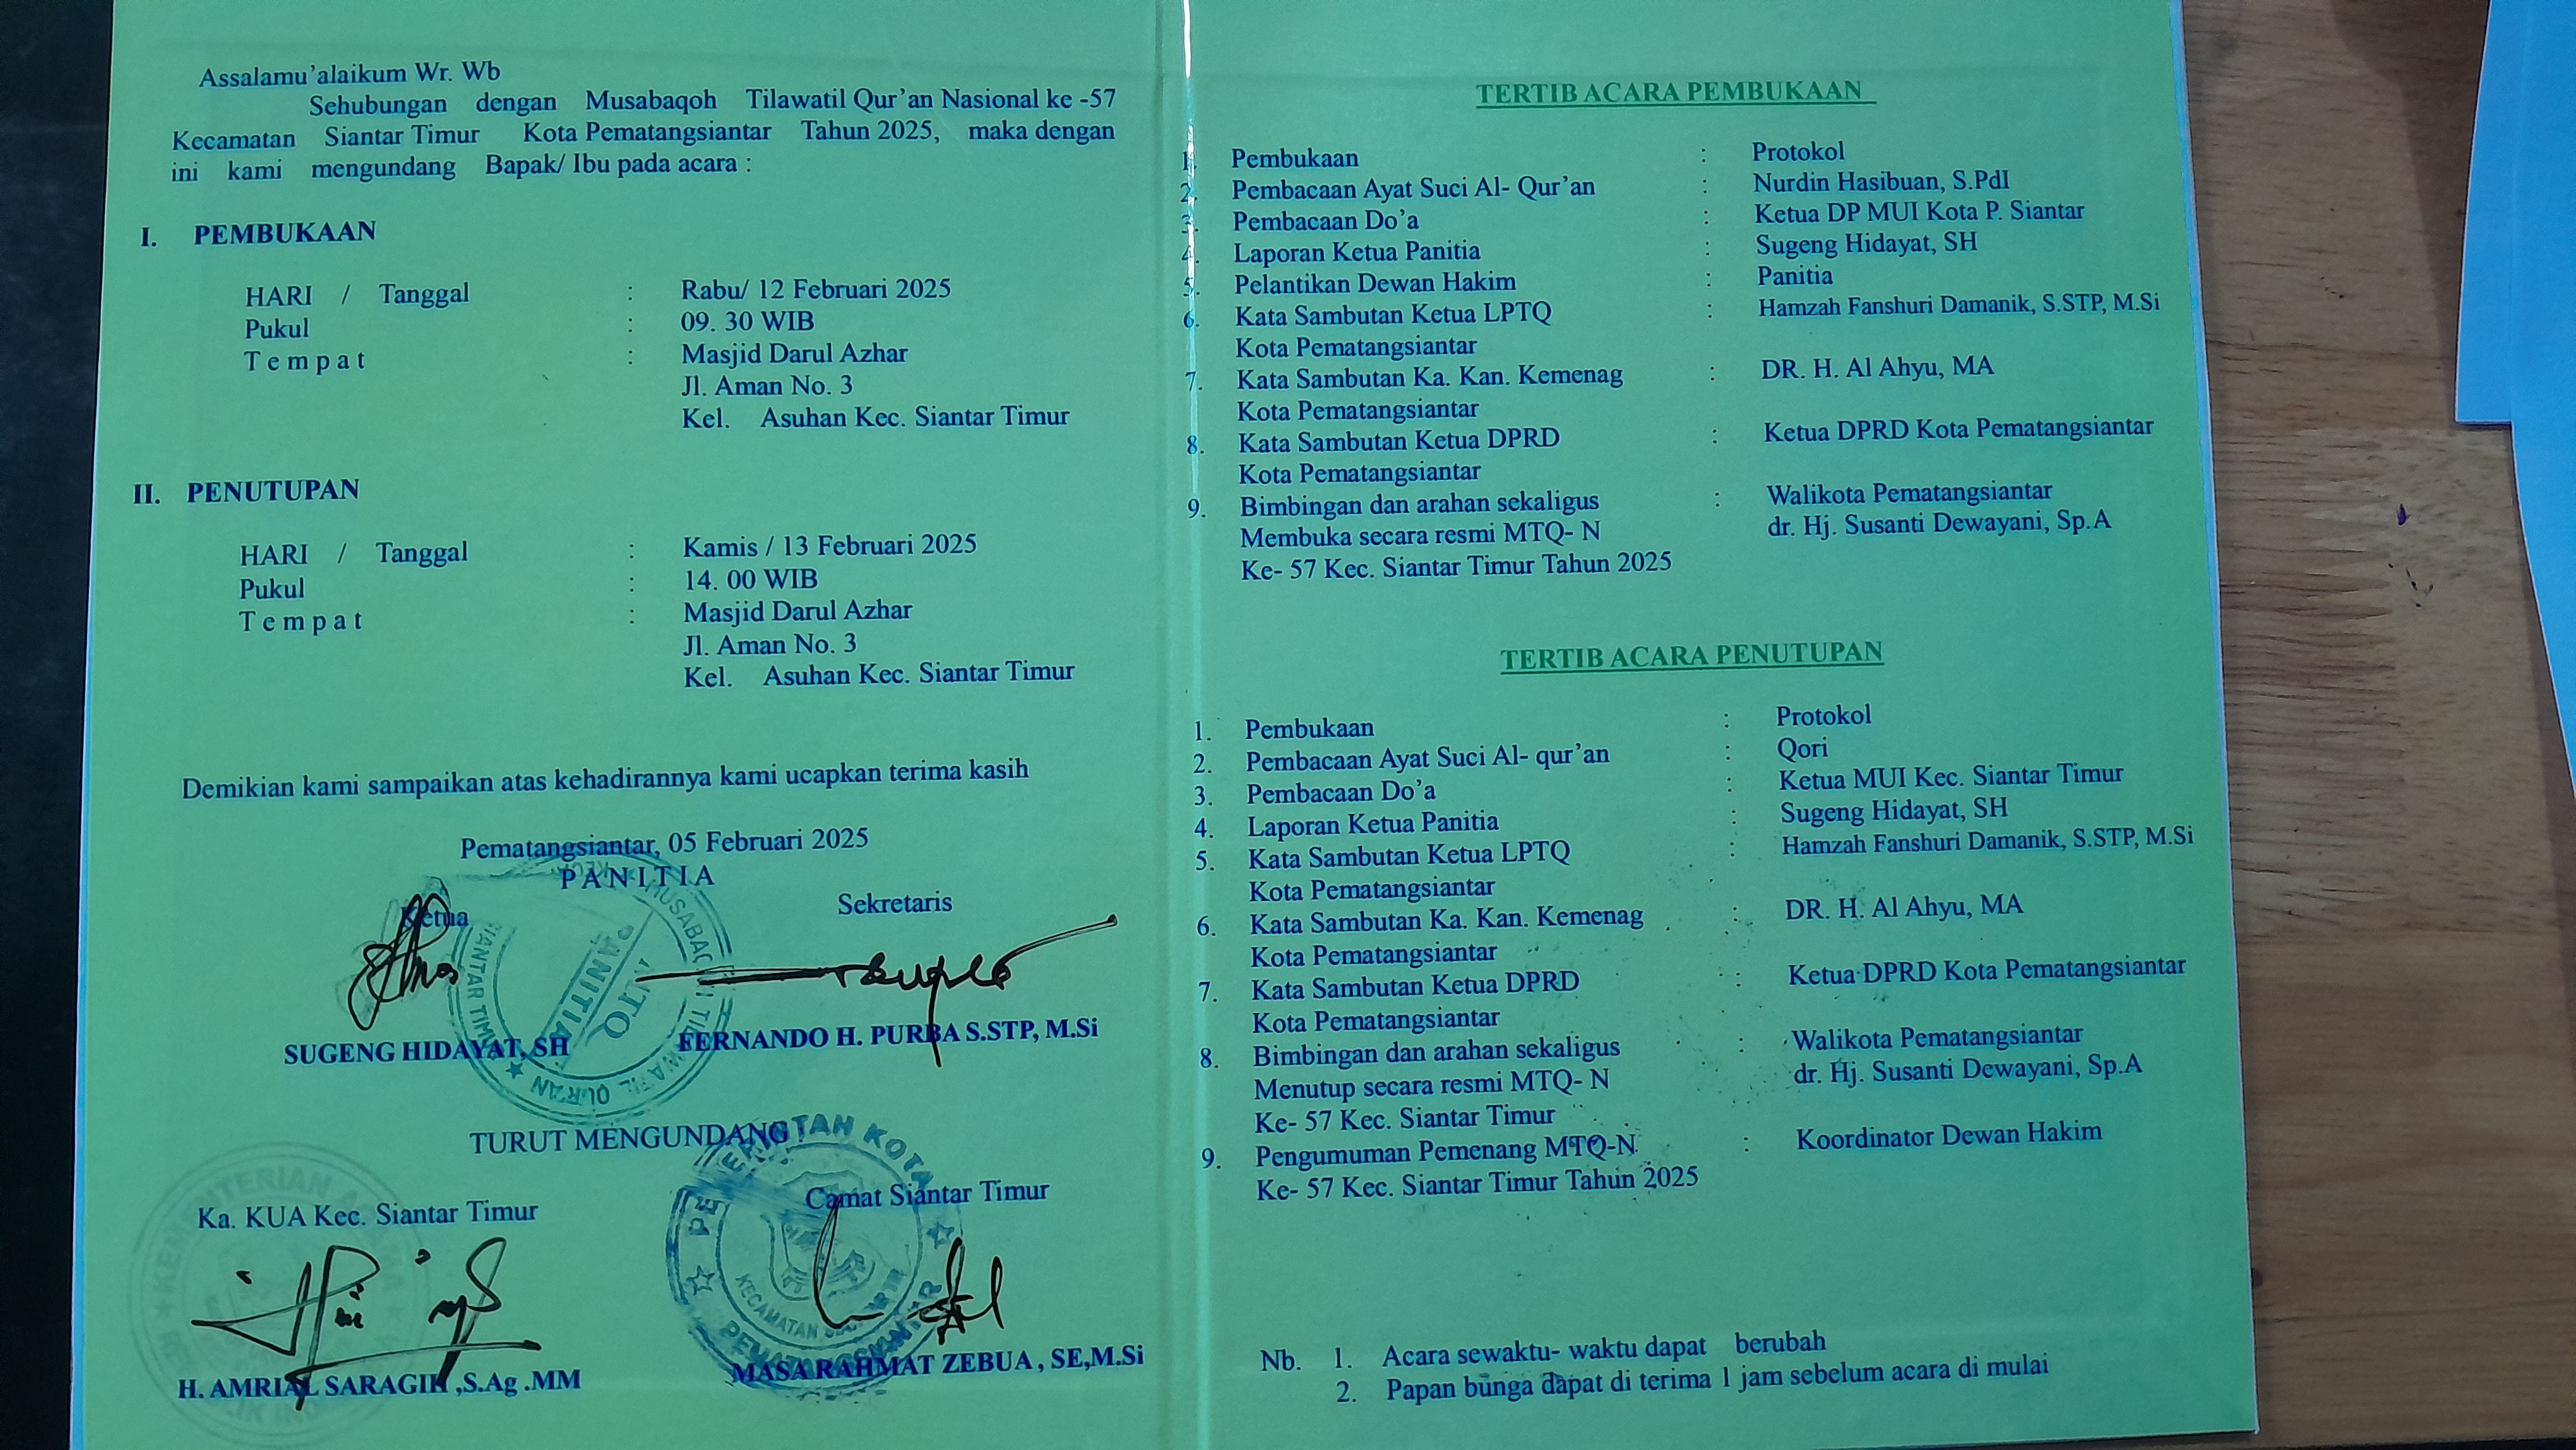 Assalamu'alaikum Wr. Wb
Sehubungan dengan Musabaqoh Tilawatil Qur'an Nasional ke -57
Kecamatan Siantar Timur Kota Pematangsiantar Tahun 2025, maka dengan
ini kami mengundang Bapak/ Ibu pada acara :
I. PEMBUKAAN
HARI / Tanggal : Rabu/ 12 Februari 2025
Pukul : 09. 30 WIB
T e m p a t : Masjid Darul Azhar
Jl. Aman No. 3
Kel. Asuhan Kec. Siantar Timur
II. PENUTUPAN
HARI / Tanggal : Kamis / 13 Februari 2025
Pukul : 14. 00 WIB
T e m p a t : Masjid Darul Azhar
Jl. Aman No. 3
Kel. Asuhan Kec. Siantar Timur
Demikian kami sampaikan atas kehadirannya kami ucapkan terima kasih
Pematangsiantar, 05 Februari 2025
P A N I T I A
Ketua Sekretaris
SUGENG HIDAYAT, SH FERNANDO H. PURBA S.STP, M.Si
TURUT MENGUNDANG
Ka. KUA Kec. Siantar Timur Camat Siantar Timur
H. AMRIAL SARAGIH ,S.Ag .MM MASA RAHMAT ZEBUA , SE,M.Si
TERTIB ACARA PEMBUKAAN
1. Pembukaan : Protokol
2. Pembacaan Ayat Suci Al- Qur'an : Nurdin Hasibuan, S.PdI
3. Pembacaan Do'a : Ketua DP MUI Kota P. Siantar
4. Laporan Ketua Panitia : Sugeng Hidayat, SH
5. Pelantikan Dewan Hakim : Panitia
6. Kata Sambutan Ketua LPTQ : Hamzah Fanshuri Damanik, S.STP, M.Si
Kota Pematangsiantar
7. Kata Sambutan Ka. Kan. Kemenag : DR. H. Al Ahyu, MA
Kota Pematangsiantar
8. Kata Sambutan Ketua DPRD : Ketua DPRD Kota Pematangsiantar
Kota Pematangsiantar
9. Bimbingan dan arahan sekaligus : Walikota Pematangsiantar
Membuka secara resmi MTQ- N dr. Hj. Susanti Dewayani, Sp.A
Ke- 57 Kec. Siantar Timur Tahun 2025
TERTIB ACARA PENUTUPAN
1. Pembukaan : Protokol
2. Pembacaan Ayat Suci Al- qur'an : Qori
3. Pembacaan Do'a : Ketua MUI Kec. Siantar Timur
4. Laporan Ketua Panitia : Sugeng Hidayat, SH
5. Kata Sambutan Ketua LPTQ : Hamzah Fanshuri Damanik, S.STP, M.Si
Kota Pematangsiantar
6. Kata Sambutan Ka. Kan. Kemenag : DR. H. Al Ahyu, MA
Kota Pematangsiantar
7. Kata Sambutan Ketua DPRD : Ketua DPRD Kota Pematangsiantar
Kota Pematangsiantar
8. Bimbingan dan arahan sekaligus : Walikota Pematangsiantar
Menutup secara resmi MTQ- N dr. Hj. Susanti Dewayani, Sp.A
Ke- 57 Kec. Siantar Timur
9. Pengumuman Pemenang MTQ-N : Koordinator Dewan Hakim
Ke- 57 Kec. Siantar Timur Tahun 2025
Nb. 1. Acara sewaktu- waktu dapat berubah
2. Papan bunga dapat di terima 1 jam sebelum acara di mulai